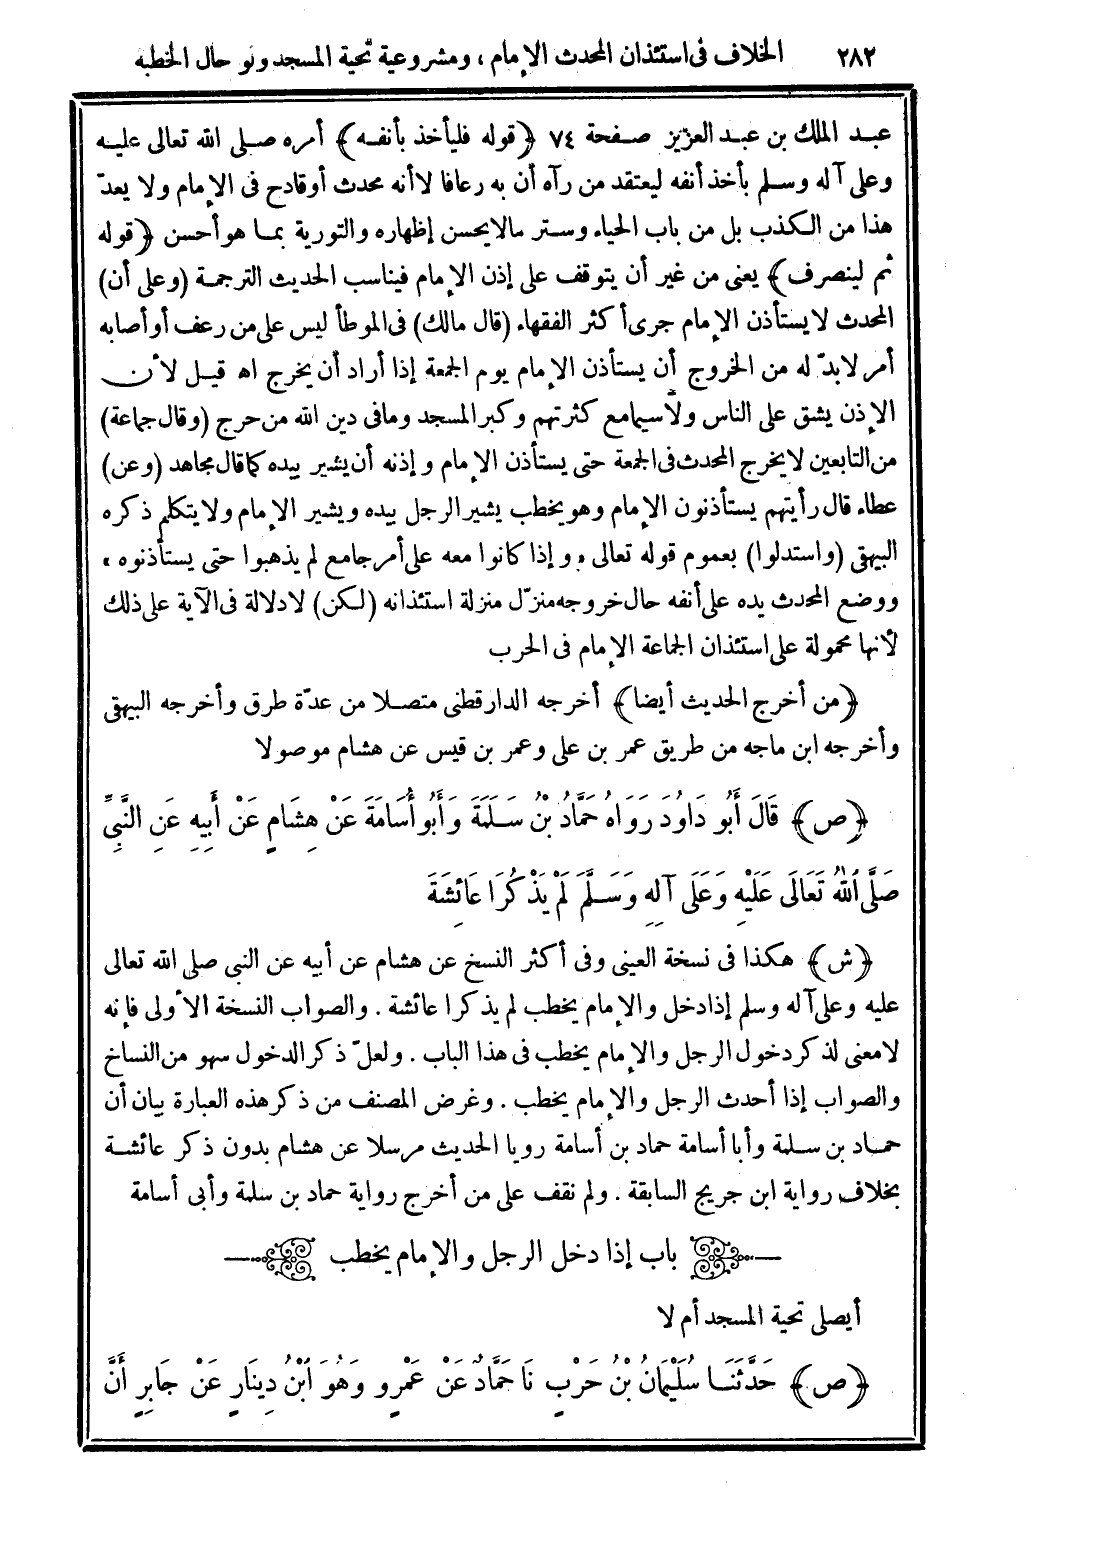 ٢٨٢ الخلاف فى استئذان المحدث الإمام ، ومشروعية تحية المسجد ولو حال الخطبه
عبد الملك بن عبد العزيز صفحة ٧٤ ﴿قوله فليأخذ بأنفه﴾ أمره صلى الله تعالى عليه
وعلى آله وسلم بأخذ أنفه ليعتقد من رآه أن به رعافا لا أنه محدث أو قادح فى الإمام ولا يعدّ
هذا من الكذب بل من باب الحياء وستر مالايحسن إظهاره والتورية بما هو أحسن ﴿قوله
ثم لينصرف﴾ يعنى من غير أن يتوقف على إذن الإمام فيناسب الحديث الترجمة (وعلى أن)
المحدث لا يستأذن الإمام جرى أكثر الفقهاء (قال مالك) فى الموطأ ليس على من رعف أو أصابه
أمر لابدّ له من الخروج أن يستأذن الإمام يوم الجمعة إذا أراد أن يخرج اه قيل لأن
الإذن يشق على الناس ولاسيما مع كثرتهم وكبر المسجد وما فى دين الله من حرج (وقال جماعة)
من التابعين لا يخرج المحدث فى الجمعة حتى يستأذن الإمام وإذنه أن يشير بيده كما قال مجاهد (وعن)
عطاء قال رأيتهم يستأذنون الإمام وهو يخطب يشير الرجل بيده ويشير الإمام ولا يتكلم ذكره
البيهقى (واستدلوا) بعموم قوله تعالى « وإذا كانوا معه على أمر جامع لم يذهبوا حتى يستأذنوه »
ووضع المحدث يده على أنفه حال خروجه منزّل منزلة استئذانه (لكن) لا دلالة فى الآية على ذلك
لأنها محمولة على استئذان الجماعة الإمام فى الحرب
﴿من أخرج الحديث أيضا﴾ أخرجه الدارقطنى متصلا من عدّة طرق وأخرجه البيهقى
وأخرجه ابن ماجه من طريق عمر بن على وعمر بن قيس عن هشام موصولا
﴿ص﴾ قَالَ أَبُو دَاوُدَ رَوَاهُ حَمَّادُ بْنُ سَلَمَةَ وَأَبُو أُسَامَةَ عَنْ هِشَامٍ عَنْ أَبِيهِ عَنِ النَّبِيِّ
صَلَّى اللهُ تَعَالَى عَلَيْهِ وَعَلَى آلِهِ وَسَلَّمَ لَمْ يَذْكُرَا عَائِشَةَ
﴿ش﴾ هكذا فى نسخة العينى وفى أكثر النسخ عن هشام عن أبيه عن النبى صلى الله تعالى
عليه وعلى آله وسلم إذا دخل والإمام يخطب لم يذكرا عائشة . والصواب النسخة الأولى فإنه
لا معنى لذكر دخول الرجل والإمام يخطب فى هذا الباب . ولعلّ ذكر الدخول سهو من النساخ
والصواب إذا أحدث الرجل والإمام يخطب . وغرض المصنف من ذكر هذه العبارة بيان أن
حماد بن سلمة وأبا أسامة حماد بن أسامة رويا الحديث مرسلا عن هشام بدون ذكر عائشة
بخلاف رواية ابن جريج السابقة . ولم نقف على من أخرج رواية حماد بن سلمة وأبى أسامة
باب إذا دخل الرجل والإمام يخطب
أيصلى تحية المسجد أم لا
﴿ص﴾ حَدَّثَنَا سُلَيْمَانُ بْنُ حَرْبٍ نَا حَمَّادٌ عَنْ عَمْرٍو وَهُوَ ابْنُ دِينَارٍ عَنْ جَابِرٍ أَنَّ